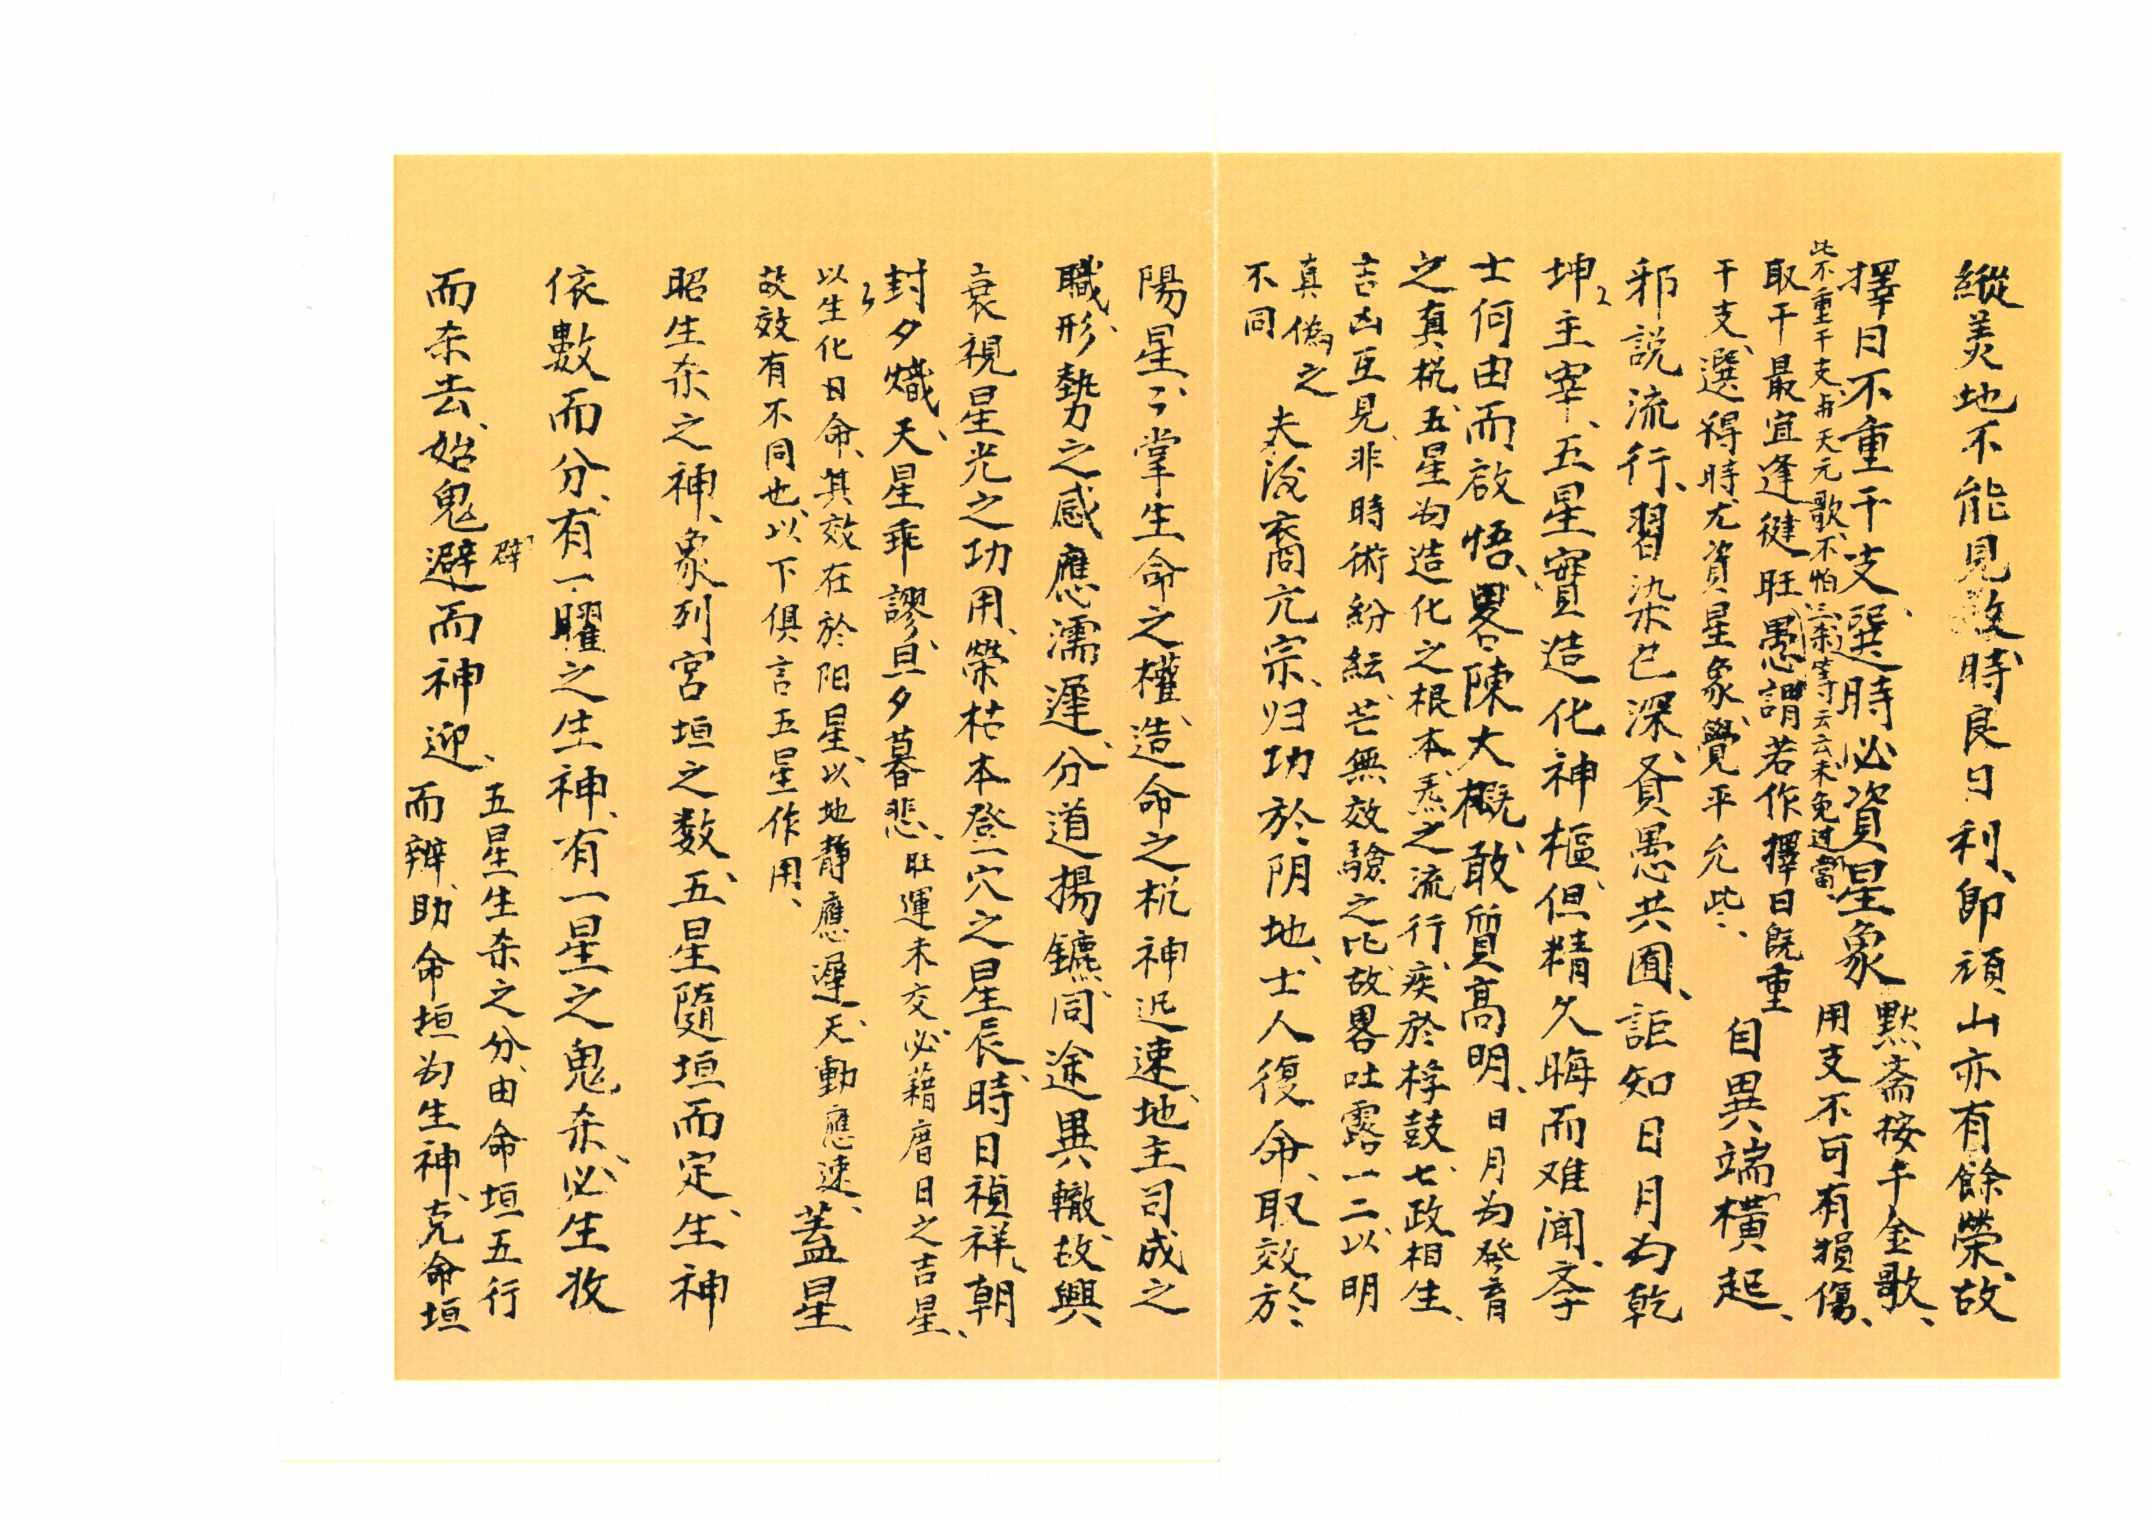 縱美地不能見效、時良日利、即頑山亦有餘榮、故
擇日不重干支、選時必資星象
默斋按千金歌、
用支不可有損傷、
此不重干支、與天元歌、不怕三杀等云云未免过當、
取干最宜逢健旺、愚謂若作擇日既重
干支、選得時尤資星象、覺平允些、
自異端橫起、
邪說流行、習染已深、賢愚共囿、詎知日月为乾
坤主宰、五星實造化神樞、但精久晦而难闻、学
士何由而啟悟、畧陳大概、敢質高明、日月为發育
之真机、五星为造化之根本、炁之流行、疾於桴鼓、七政相生、
吉凶互見、非時術紛紜、芒無效驗之比、故畧吐露一二、以明
真僞之
不同
夫後裔亢宗、归功於阴地、士人復命、取效於
陽星、星掌生命之權、造命之机神迅速、地主司成之
職、形勢之感應濡遲、分道揚鑣、同途異轍、故興
衰視星光之功用、榮枯本登穴之星辰、時日禎祥、朝
封夕熾、天星乖謬、旦夕暮悲、旺運未交、必藉曆日之吉星、
以生化日命、其效在於阳星、以地静應遲、天動應速、
故效有不同也、以下俱言五星作用、
蓋星
昭生杀之神、象列宮垣之数、五星隨垣而定、生神
依數而分、有一曜之生神、有一星之鬼杀、必生收
而杀去、始鬼避而神迎、
辟
五星生杀之分、由命垣五行
而辨、助命垣为生神、克命垣